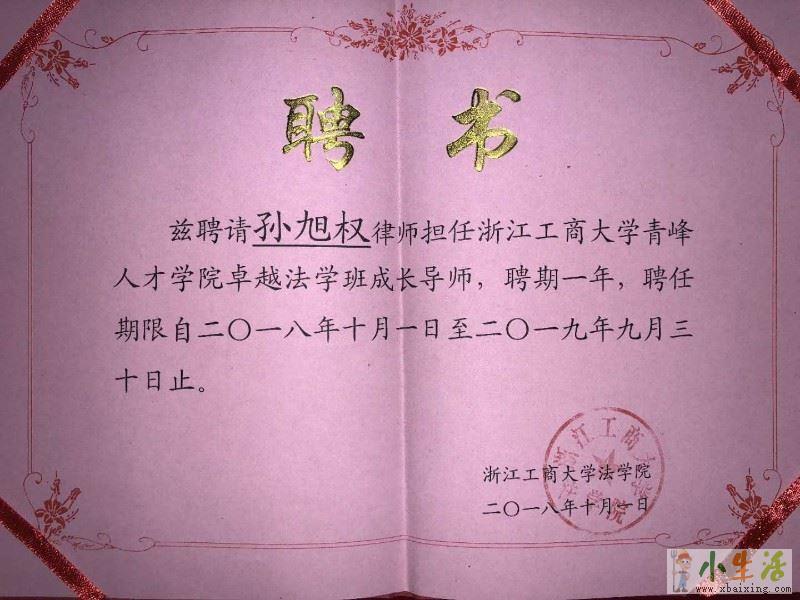 聘书
兹聘请孙旭权律师担任浙江工商大学青峰
人才学院卓越法学班成长导师，聘期一年，聘任
期限自二〇一八年十月一日至二〇一九年九月三
十日止。
浙江工商大学法学院
二〇一八年十月一日
浙江工商大学法学院
小生活
www.xbaixing.com